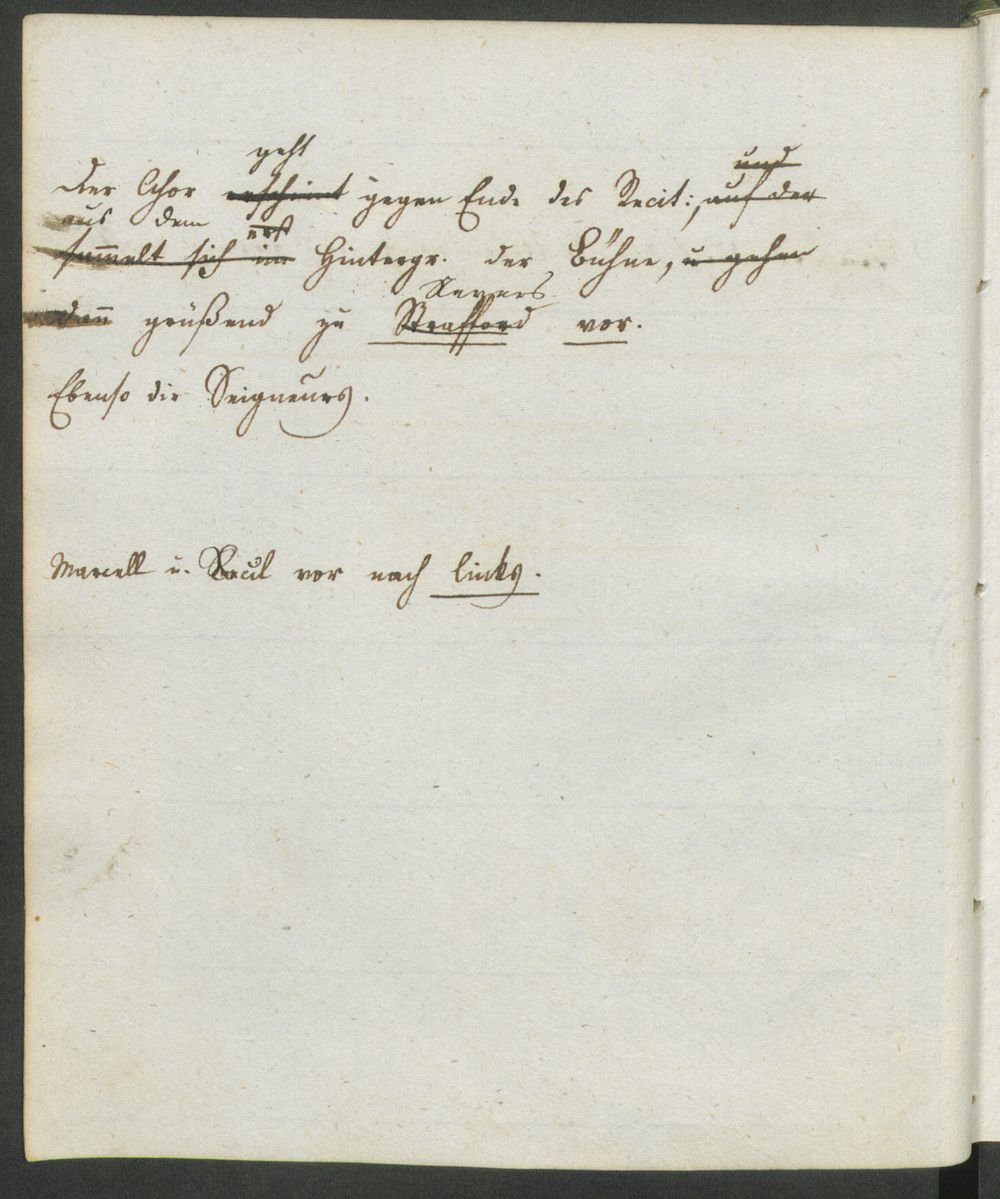 geht
und
Der Chor erscheint gegen Ende des Recit:, auf der
aus dem
erst
sammelt sich im Hintergr. der Bühne, u gehen
Nevers
dann grüßend zu Strafford vor.
Ebenso die Seigneurs.
Marcell u. Raoul vor nach links.